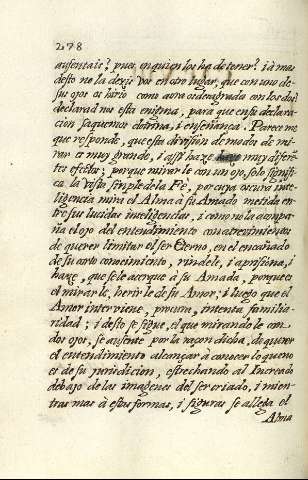 278
ausentais? pues en quien los ha de tener? i á mas
desto no la dexis vos en otro lugar, que con uno de
sus ojos os hirió como aora ordenays la con los dos?
declarad nos esta enigma, para que en su declara-
cion saquemos dotrina, i enseñanca. Pareceme
que responde, que esta division de modo de mi-
rar es muy grande, i assi haze muy diferen-
tes efectos; porque mirarle con un ojo, solo signifi-
ca la vista simple de la Fe, por cuya oscura inte-
ligencia mira el Alma à su Amado metida en-
tre sus lucidas inteligencias, i como no la acompa-
ña el ojo del entendimiento con atrevimientos
de querer limitar el ser Eterno, en el encañado
de su corto conocimiento, rindele, i aprisiona, i
haze, que se le acerque à su Amada, porque es
el mirarle, herirle de su Amor; i luego que el
Amor interviene, procura, intenta familia-
ridad; i desto se sigue, el que mirandole con
dos ojos, se ausente por la razon dicha, de querer
el entendimiento alcançar à conocer lo que no
es de su juridicion, estrechando al Increado
debajo de las imagenes del ser criado, i mien-
tras mas à estas formas, i figuras se allega el
Alma